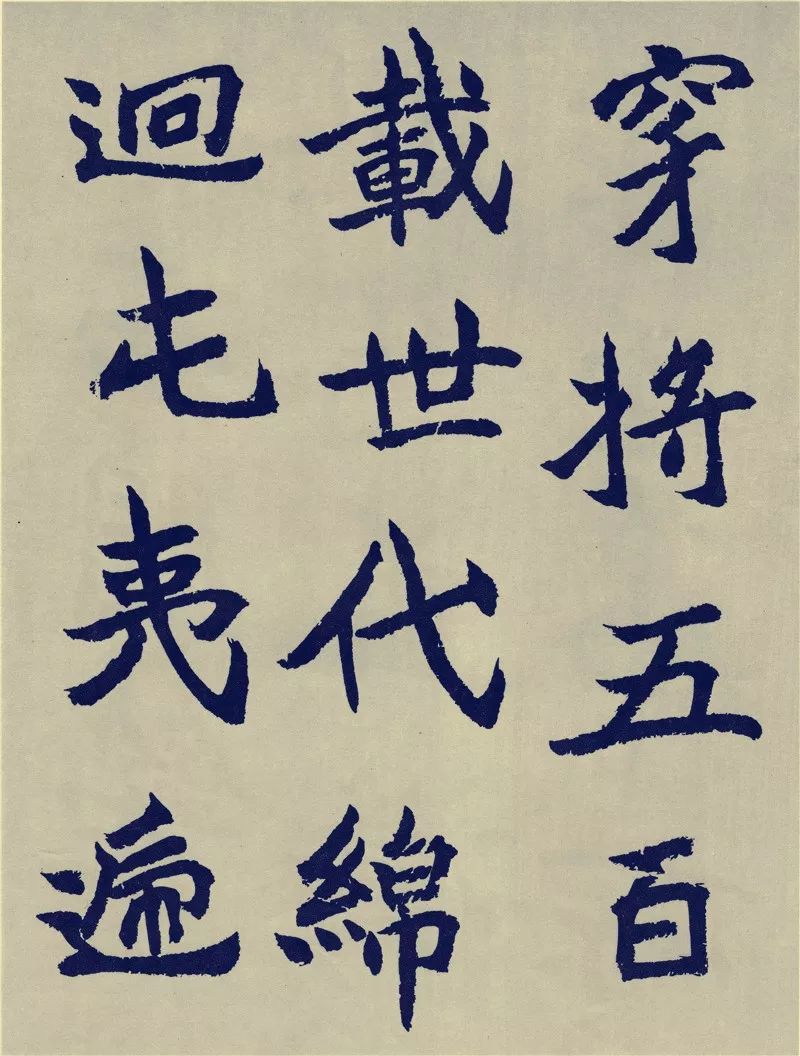 穿将五百
載世代綿
迴屯夷遞